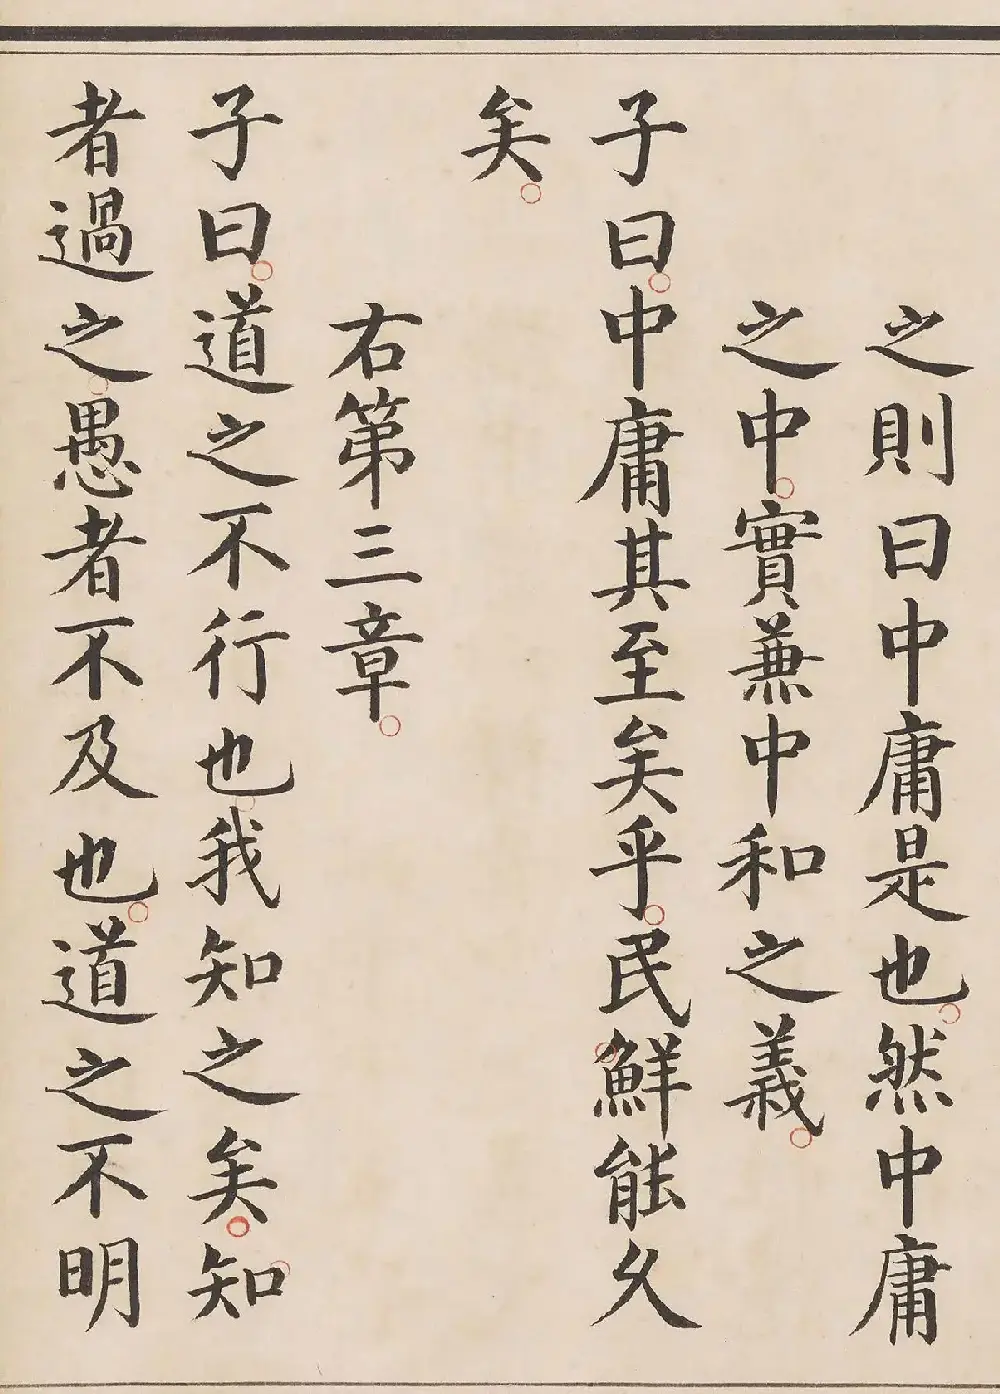 之則曰中庸是也然中庸
之中實蕪中和之義
子曰中庸其至矣乎民鮮能久
矣
右第三章
子曰道之不行也我知之矣知
者過之愚者不及也道之不明